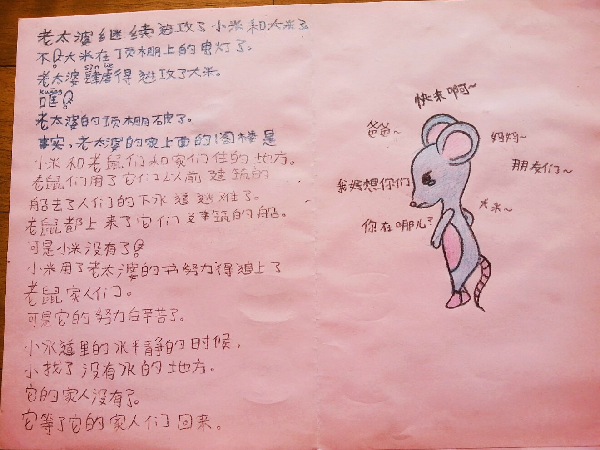 老太婆继续进攻了小米和大米了
不!大米在顶棚上的电灯了。
老太婆肆虐得进攻了大米。
sìn üè
kuāng
哐!
老太婆的顶棚破了。
事实,老太婆的家上面的阁楼是
小米和老鼠们和家人们住的地方。
老鼠们用了它们以前建筑的
船去了人们的下水道逃难了。
老鼠都上来了它们建筑的船。
可是小米没有了!
小米用了老太婆的书努力得追上了
老鼠家人们。
可是它的努力白辛苦了。
小水道里的水平静的时候,
小找了没有水的地方。
它的家人没有了。
它等了它的家人们回来。
快来啊~
爸爸~
妈妈~
朋友们~
我好想你们
大米~
你在哪儿?